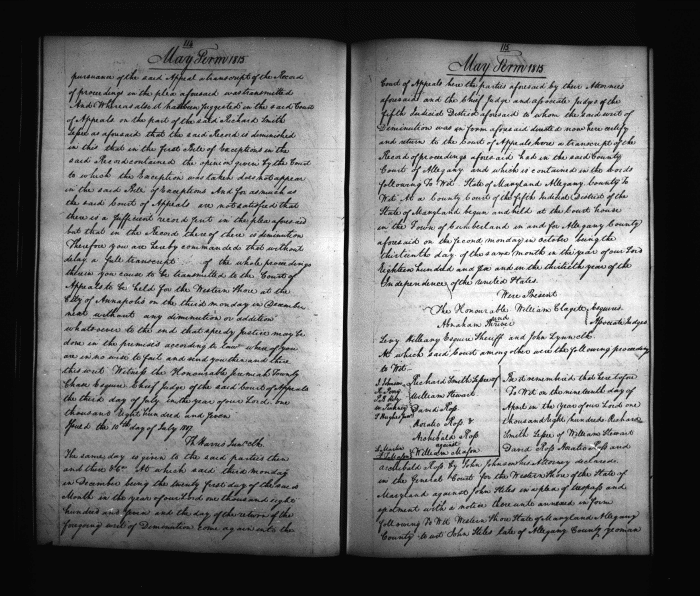 114
May Term 1815
pursuance of the said Appeal a transcript of the Record
of proceedings in the plea aforesaid was transmitted
And Whereas also it hath been suggested in the said Court
of Appeals on the part of the said Richard Smith
Lessee as aforesaid that the said Record is diminished
in this that in the first Bill of Exceptions in the
said Record contained the opinion given by the Court
to which the Exception was taken does not appear
in the said Bill of Exceptions And for as much as
the said Court of Appeals are not satisfied that
there is a sufficient record sent in the plea aforesaid
but that in the Record thereof there is diminution
Therefore you are hereby commanded that without
delay a full transcript of the whole proceedings
therein you cause to be transmitted to the Court of
Appeals to be held for the Western Shore at the
City of Annapolis on the third monday in December
next without any diminution or addition
whatsoever to the end that speedy Justice may be
done in the premises according to Law whereof you
are in no wise to fail and send you then and there
this writ Witness the Honourable Jeremiah Townly
Chase Esquire Chief Judge of the said Court of Appeals
the third day of July in the year of our Lord one
thousand Eight hundred and seven
Issued the 10th day of July 1807
Th Harris Junr Clk.
The same day is given to the said parties then
and there &c. At which said third monday
in December being the twenty first day of the same
Month in the year of our Lord one thousand eight
hundred and seven and the day of the return of the
foregoing writ of Diminution come again into the
115
May Term 1815
Court of Appeals here the parties aforesaid by their Attornies
aforesaid and the Chief Judge and associate Judges of the
fifth Judicial District aforesaid to whom the said writ of
Diminution was in form aforesaid directed now here certify
and return to the Court of Appeals here a transcript of the
Record of proceedings aforesaid had in the said County
Court of Allegany and which is contained in the words
following To Wit. State of Maryland Allegany County To
Wit At a County Court of the fifth Judicial District of the
State of Maryland begun and held at the Court house
in the Town of Cumberland in and for Allegany County
aforesaid on the second monday in october being the
thirteenth day of the same month in the year of our Lord
Eighteen hundred and and in the thirtieth year of the
Independence of the United States.
Were Present
The Honourable William Clagett Esquires
and
Abraham Associate Judges
Levy Hilleary Esquire Sheriff and John Lynn clk.
At which said Court among other were the following proceedings
to Wit
J Johnson
Richard Smith Lessee of
William Stewart
David Ross
Horatio Ross &
Archibald Ross
against
William Mason
L. Martin
Be it remembered that heretofore
To Wit on the nineteenth day of
April in the year of our Lord one
thousand eight hundred Richard
Smith Lessee of William Stewart
David Ross Horatio Ross and
Archibald Ross by John Johnson his Attorney declared
in the General Court for the Western Shore of the State of
Maryland against John Hiles in a plea of trespass and
ejectment with a notice thereunto annexed in form
following To Wit Western Shore State of Maryland Allegany
County to wit John Hiles late of Allegany County yeoman